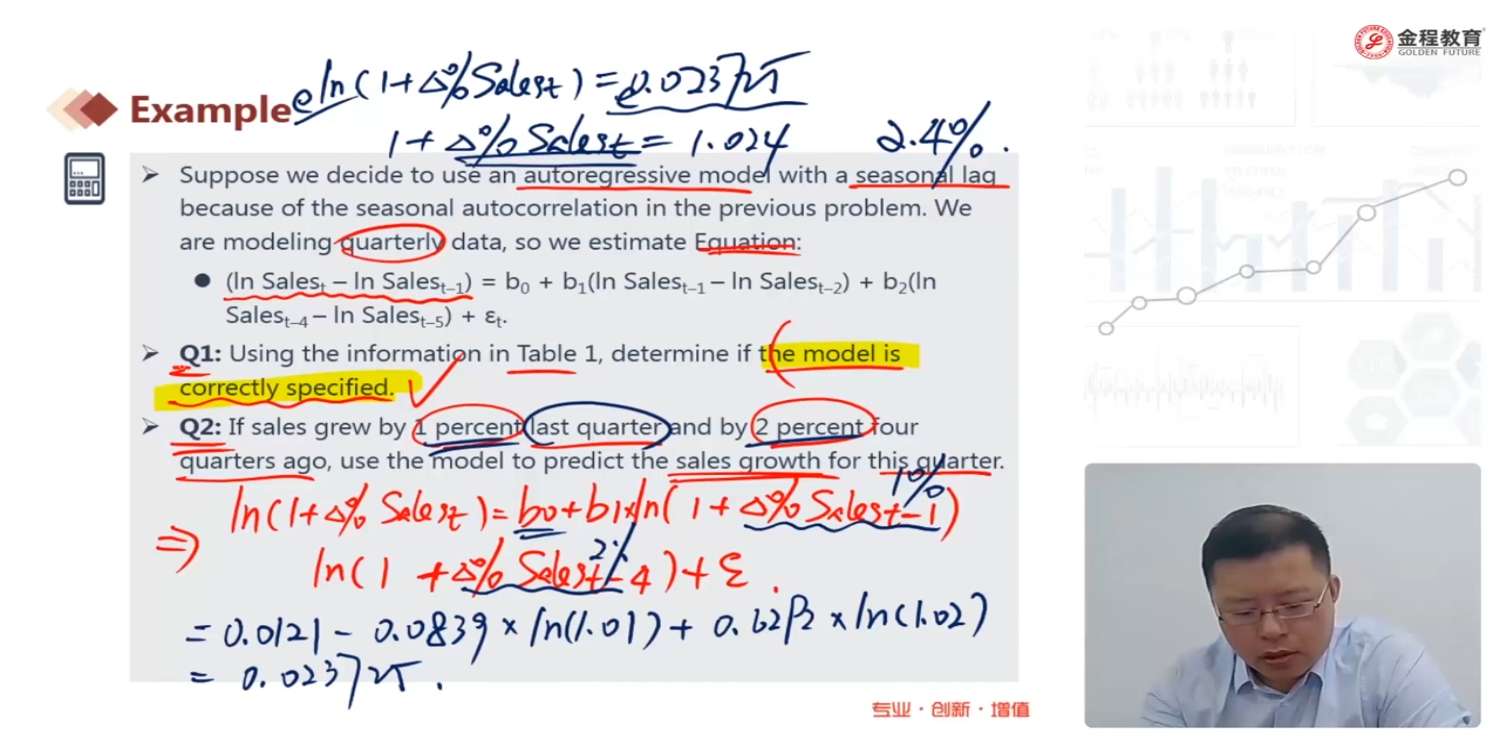 金程教育
GOLDEN FUTURE
e ln(1+Δ%Salest)=e0.023725
Example
1+Δ%Salest=1.024 2.4%.
➢ Suppose we decide to use an autoregressive model with a seasonal lag
because of the seasonal autocorrelation in the previous problem. We
are modeling quarterly data, so we estimate Equation:
● (ln Salesₜ – ln Salesₜ₋₁) = b₀ + b₁(ln Salesₜ₋₁ – ln Salesₜ₋₂) + b₂(ln
Salesₜ₋₄ – ln Salesₜ₋₅) + εₜ.
➢ Q1: Using the information in Table 1, determine if the model is
correctly specified.
➢ Q2: If sales grew by 1 percent last quarter and by 2 percent four
quarters ago, use the model to predict the sales growth for this quarter.
1%
ln(1+Δ%Salest)=b0+b1×ln(1+Δ%Salest-1)
2%
⇒ ln(1+Δ%Salest-4)+ε.
=0.0121-0.0839×ln(1.01)+0.6292×ln(1.02)
=0.023725.
专业·创新·增值